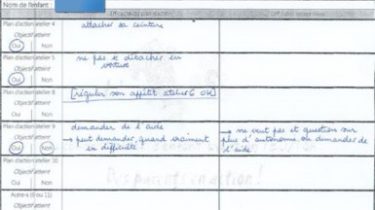 Nom de l'enfant :
Plan d'action atelier 4
attacher sa ceinture
Objectif atteint
Oui Non
Plan d'action atelier 5
ne pas se détacher en
voiture
Objectif atteint
Oui Non
Plan d'action atelier 8
[réguler son appétit atelier 6 OK]
Objectif atteint
Oui Non
Plan d'action atelier 9
demander de l'aide
Objectif atteint
→ peut demander quand vraiment
en difficulté
Oui Non
→ ne veut pas et questions sur
plus d'autonomie ou demander de
l'aide
Plan d'action atelier 10
Objectif atteint
Oui Non
Des parents en action !